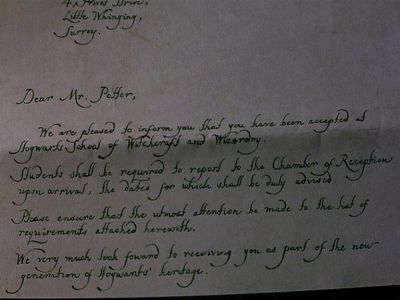 4, Privet Drive,
Little Whinging,
Surrey.
Dear Mr. Potter,
We are pleased to inform you that you have been accepted at
Hogwarts School of Witchcraft and Wizardry.
Students shall be required to report to the Chamber of Reception
upon arrival, the dates for which shall be duly advised
Please ensure that the utmost attention be made to the list of
requirements attached herewith.
We very much look foward to receiving you as part of the new
generation of Hogwarts' heritage.